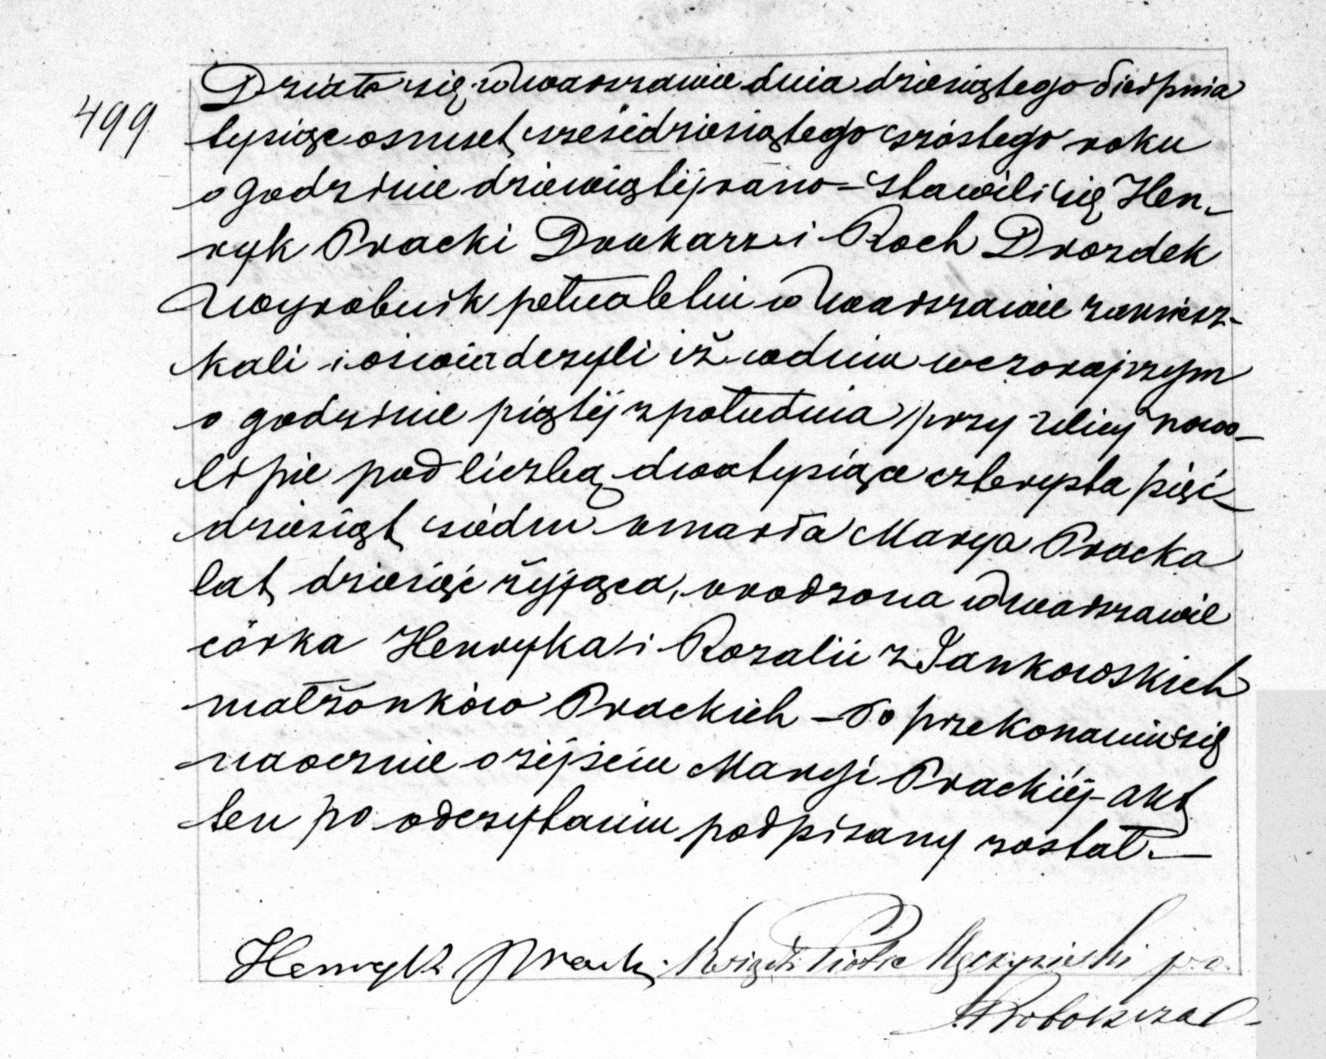 499
Działo się w Warszawie dnia dziesiątego Sierpnia
tysiąc osmset sześćdziesiątego szóstego roku
o godzinie dziewiątéj rano – Stawili się Hen-
ryk Pracki Drukarz i Roch Drozdek
Wyrobnik pełnoletni w Warszawie zamiesz-
kali i oświadczyli iż w dniu wczorajszym
o godzinie piątéj z południa przy ulicy Nowo-
lipie pod liczbą dwatysiące czterysta pięć-
dziesiąt siedm umarła Marya Pracka
lat dziesięć żyjąca, urodzona w Warszawie
córka Henryka i Rozalii z Jankowskich
małżonków Prackich – Po przekonaniu się
naocznie o zejściu Maryi Prackiéj – akt
ten po odczytaniu podpisany został. –
Henryk Pracki Ksiądz Piotr